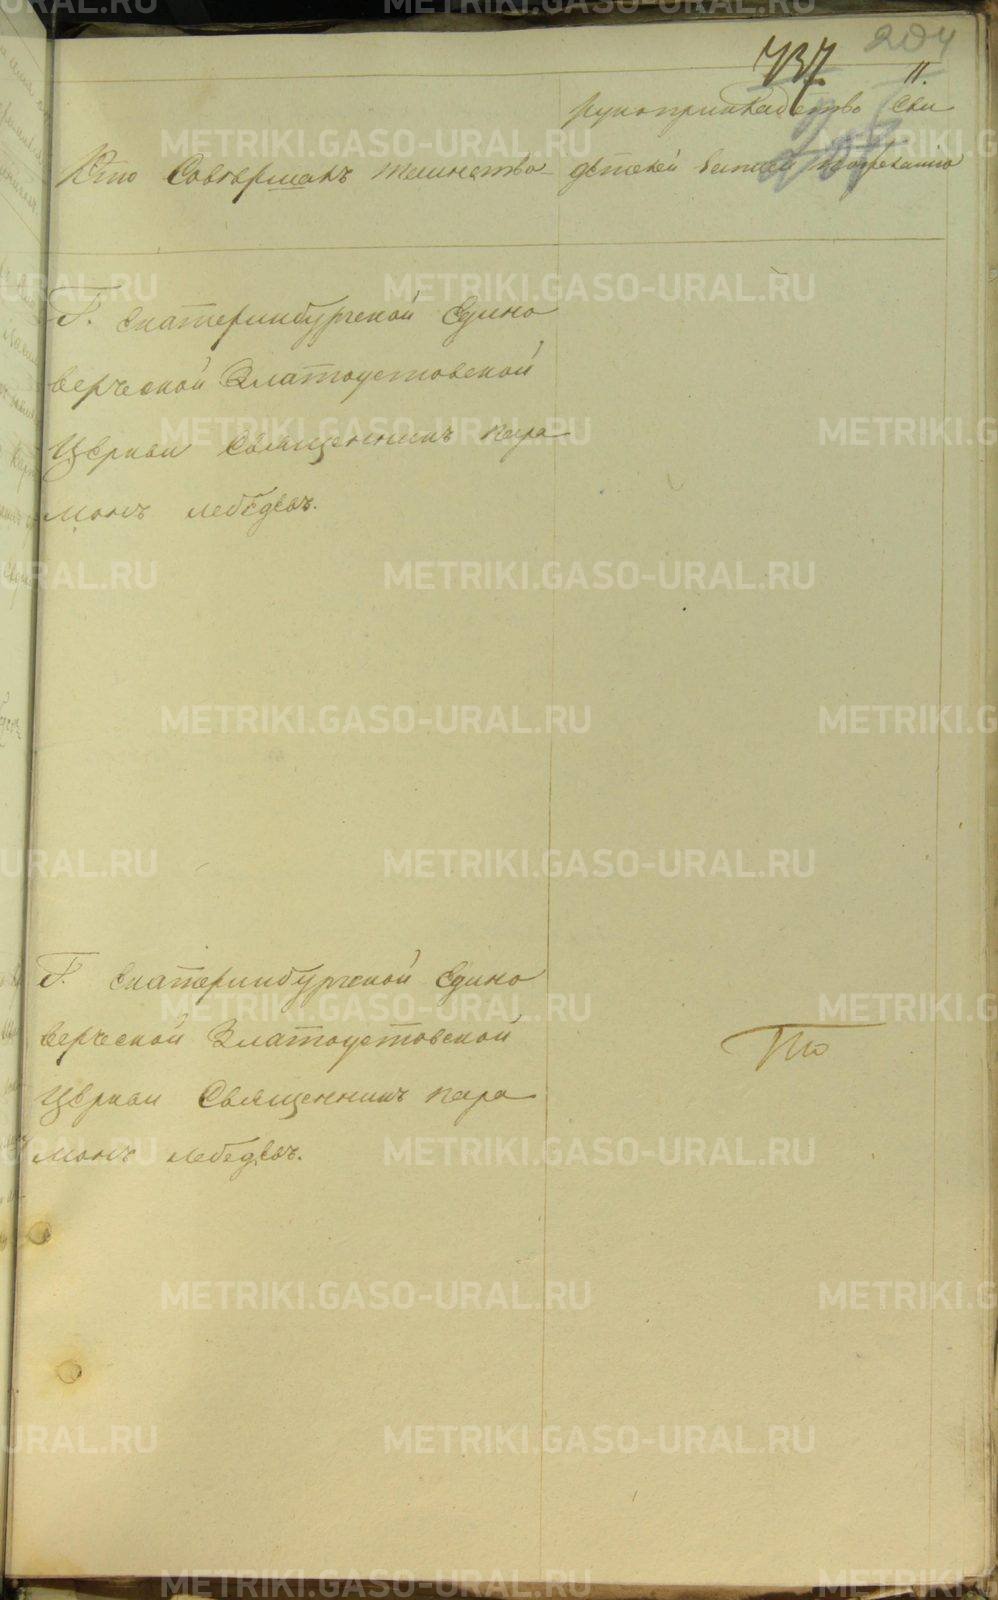 737
204
11.
Кто Совершалъ таинство
рукоприкладство Сви
дѣтелей записи по желанію
Г. Екатеринбургской Едино
верческой Златоустовской
Церкви Священникъ Пара
монъ Лебедевъ.
Г. Екатеринбургской Едино
верческой Златоустовской
Церкви Священникъ Пара
монъ Лебедевъ.
METRIKI.GASO-URAL.RU